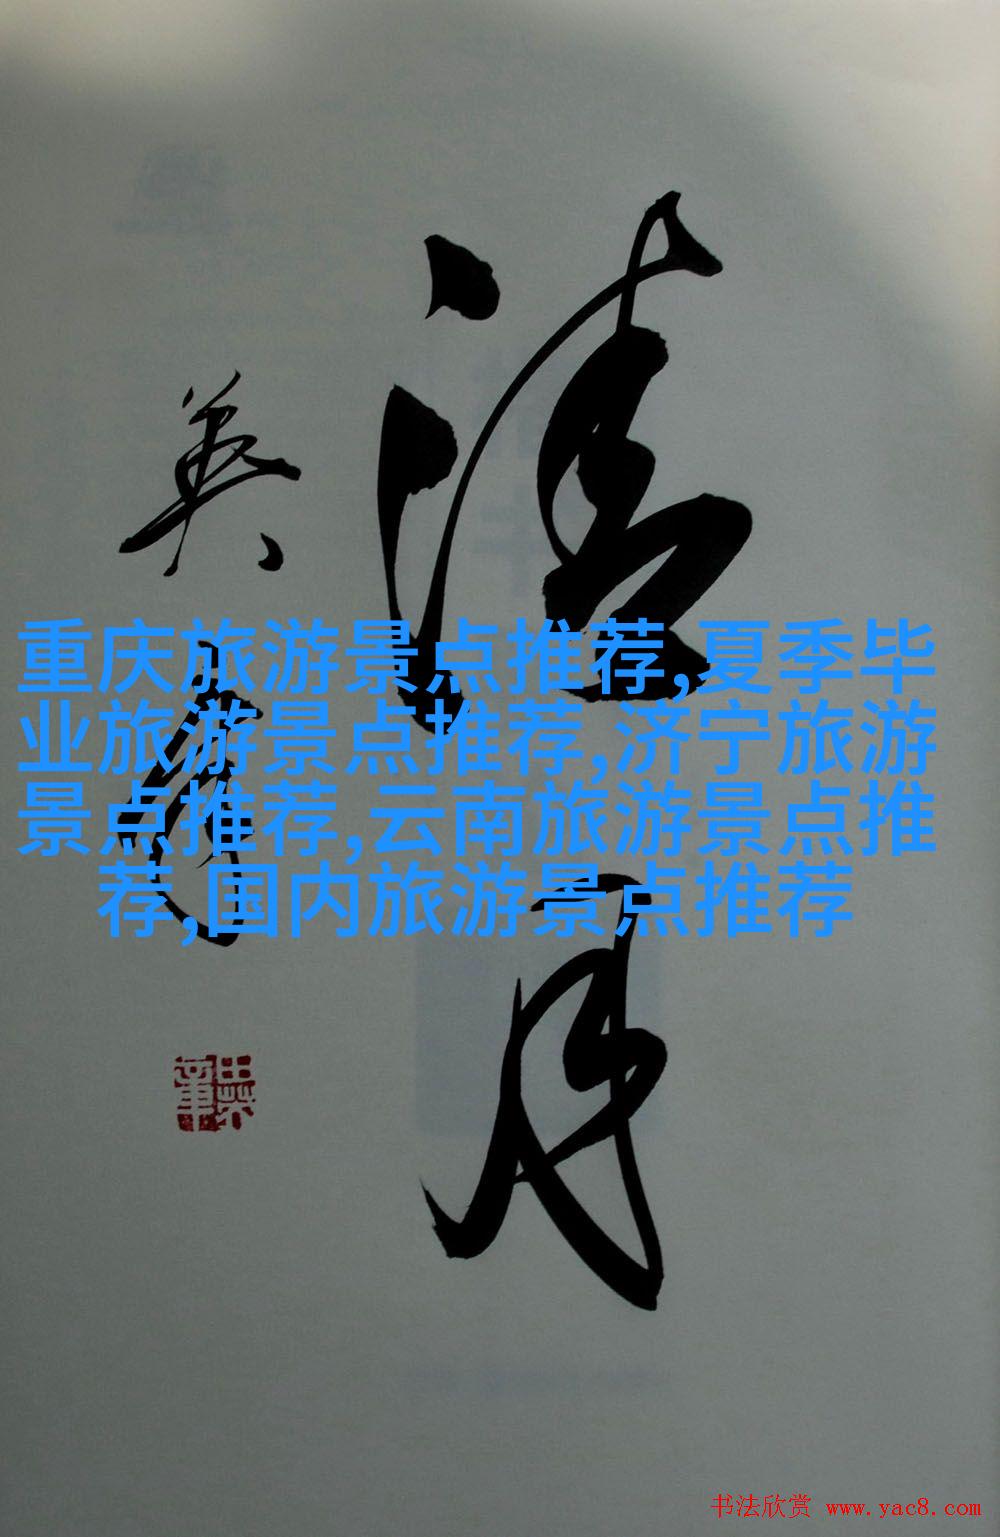 清
风
英
章
重庆旅游景点推荐,夏季毕
业旅游景点推荐,济宁旅游
景点推荐,云南旅游景点推
荐,国内旅游景点推荐
书法欣赏 www.yac8.com